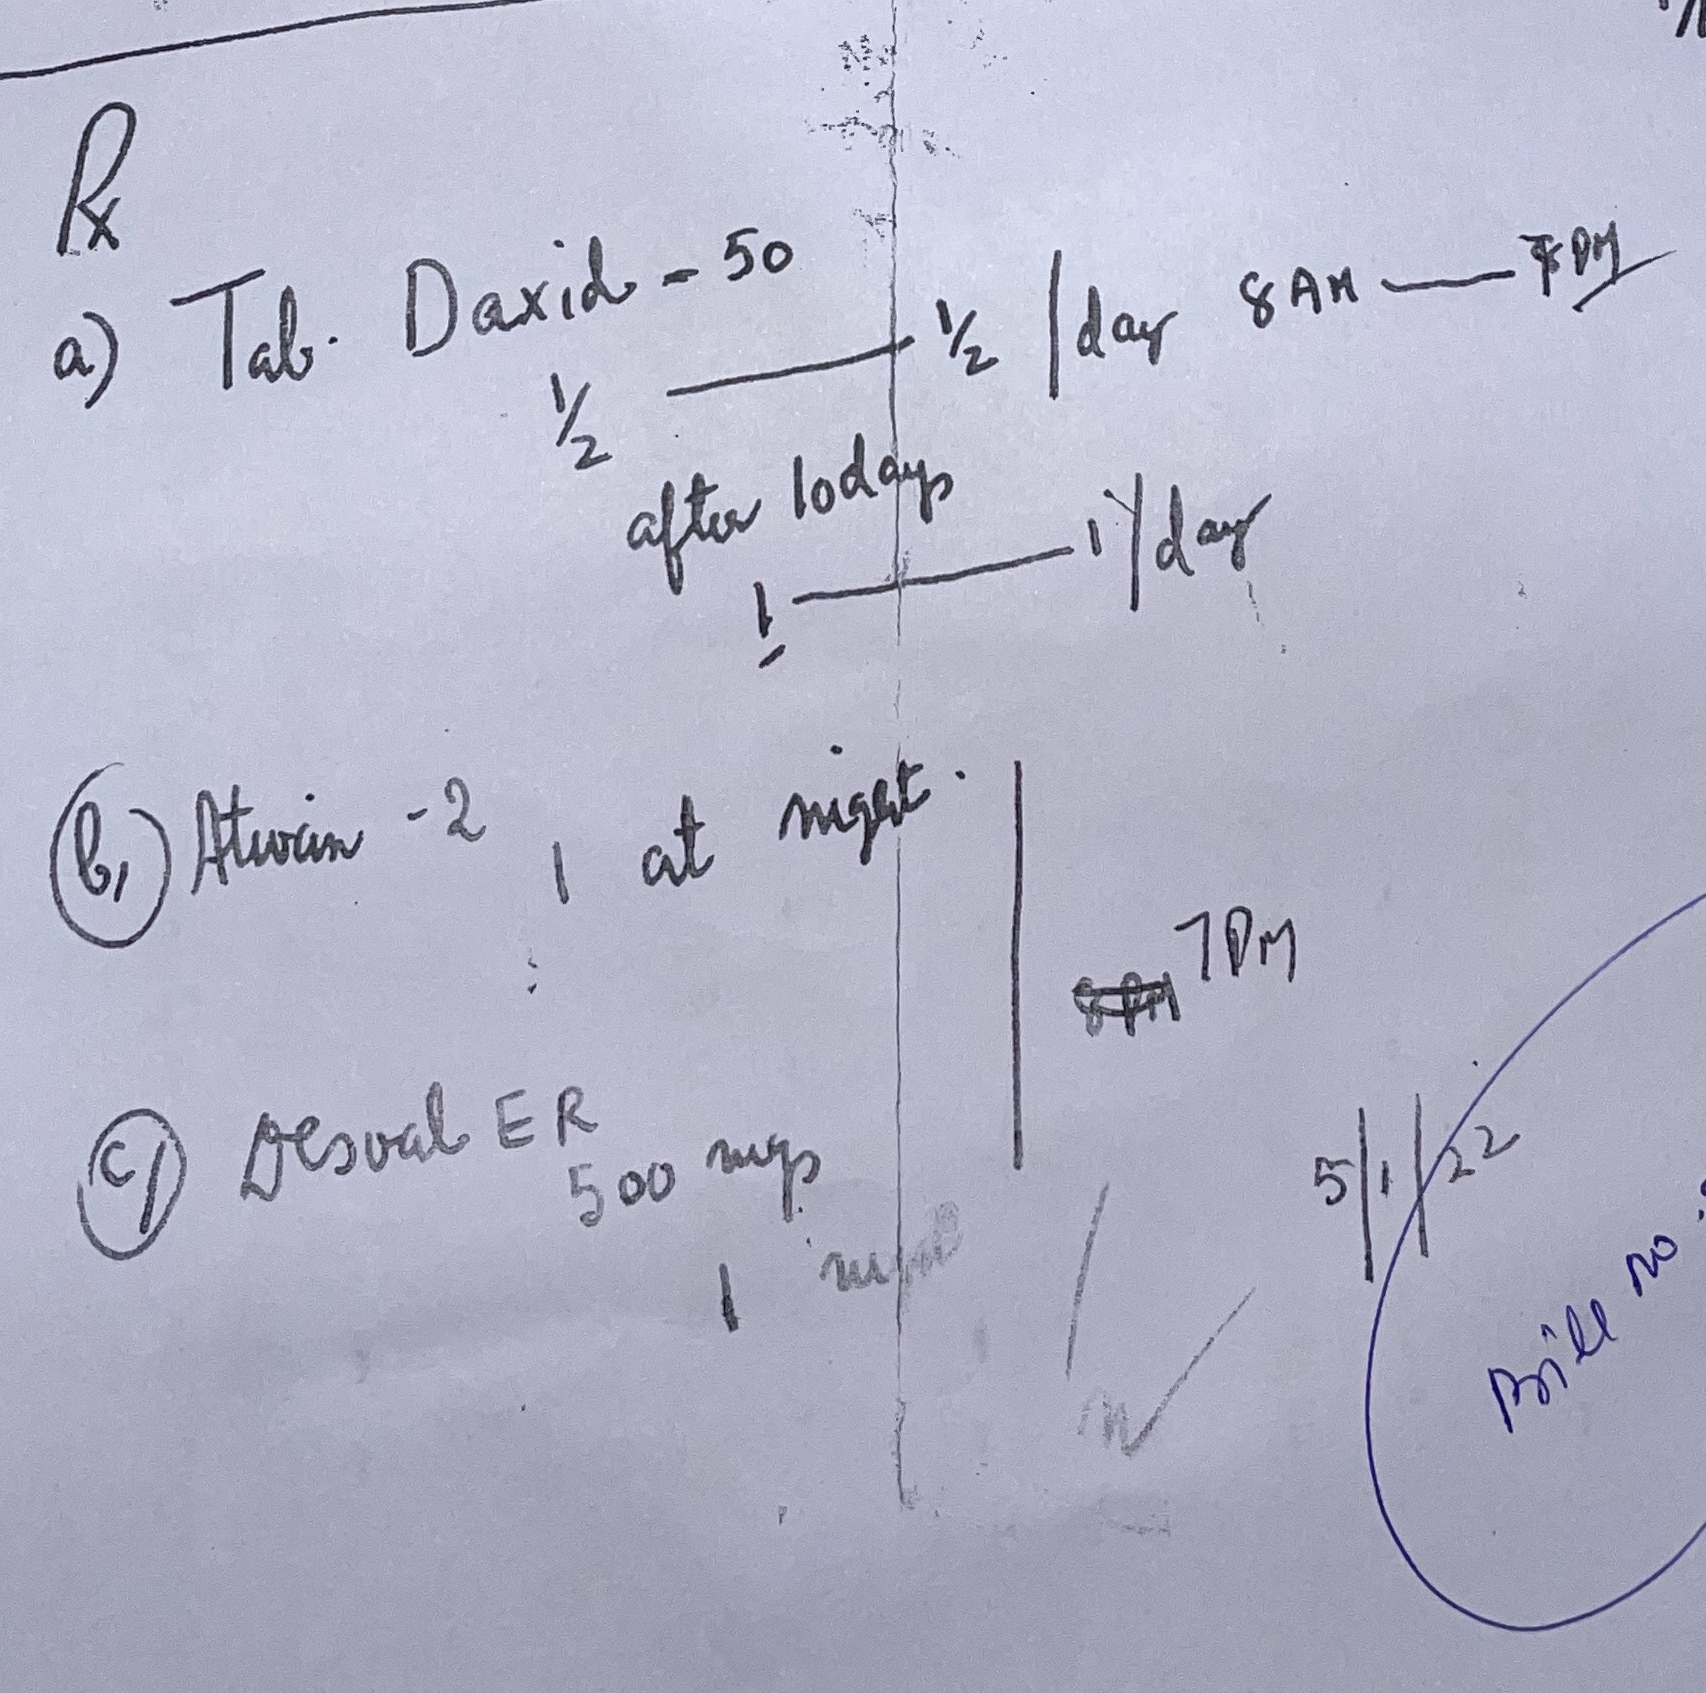 Rx
a) Tab. Daxid - 50
½ — ½ / day 8 AM — 7 PM
after 10 days
1 — 1 / day
b) Ativan - 2 1 at night.
8 PM 7 PM
c) Desval ER
500 mgs
1 night
5/1/22
Bill no